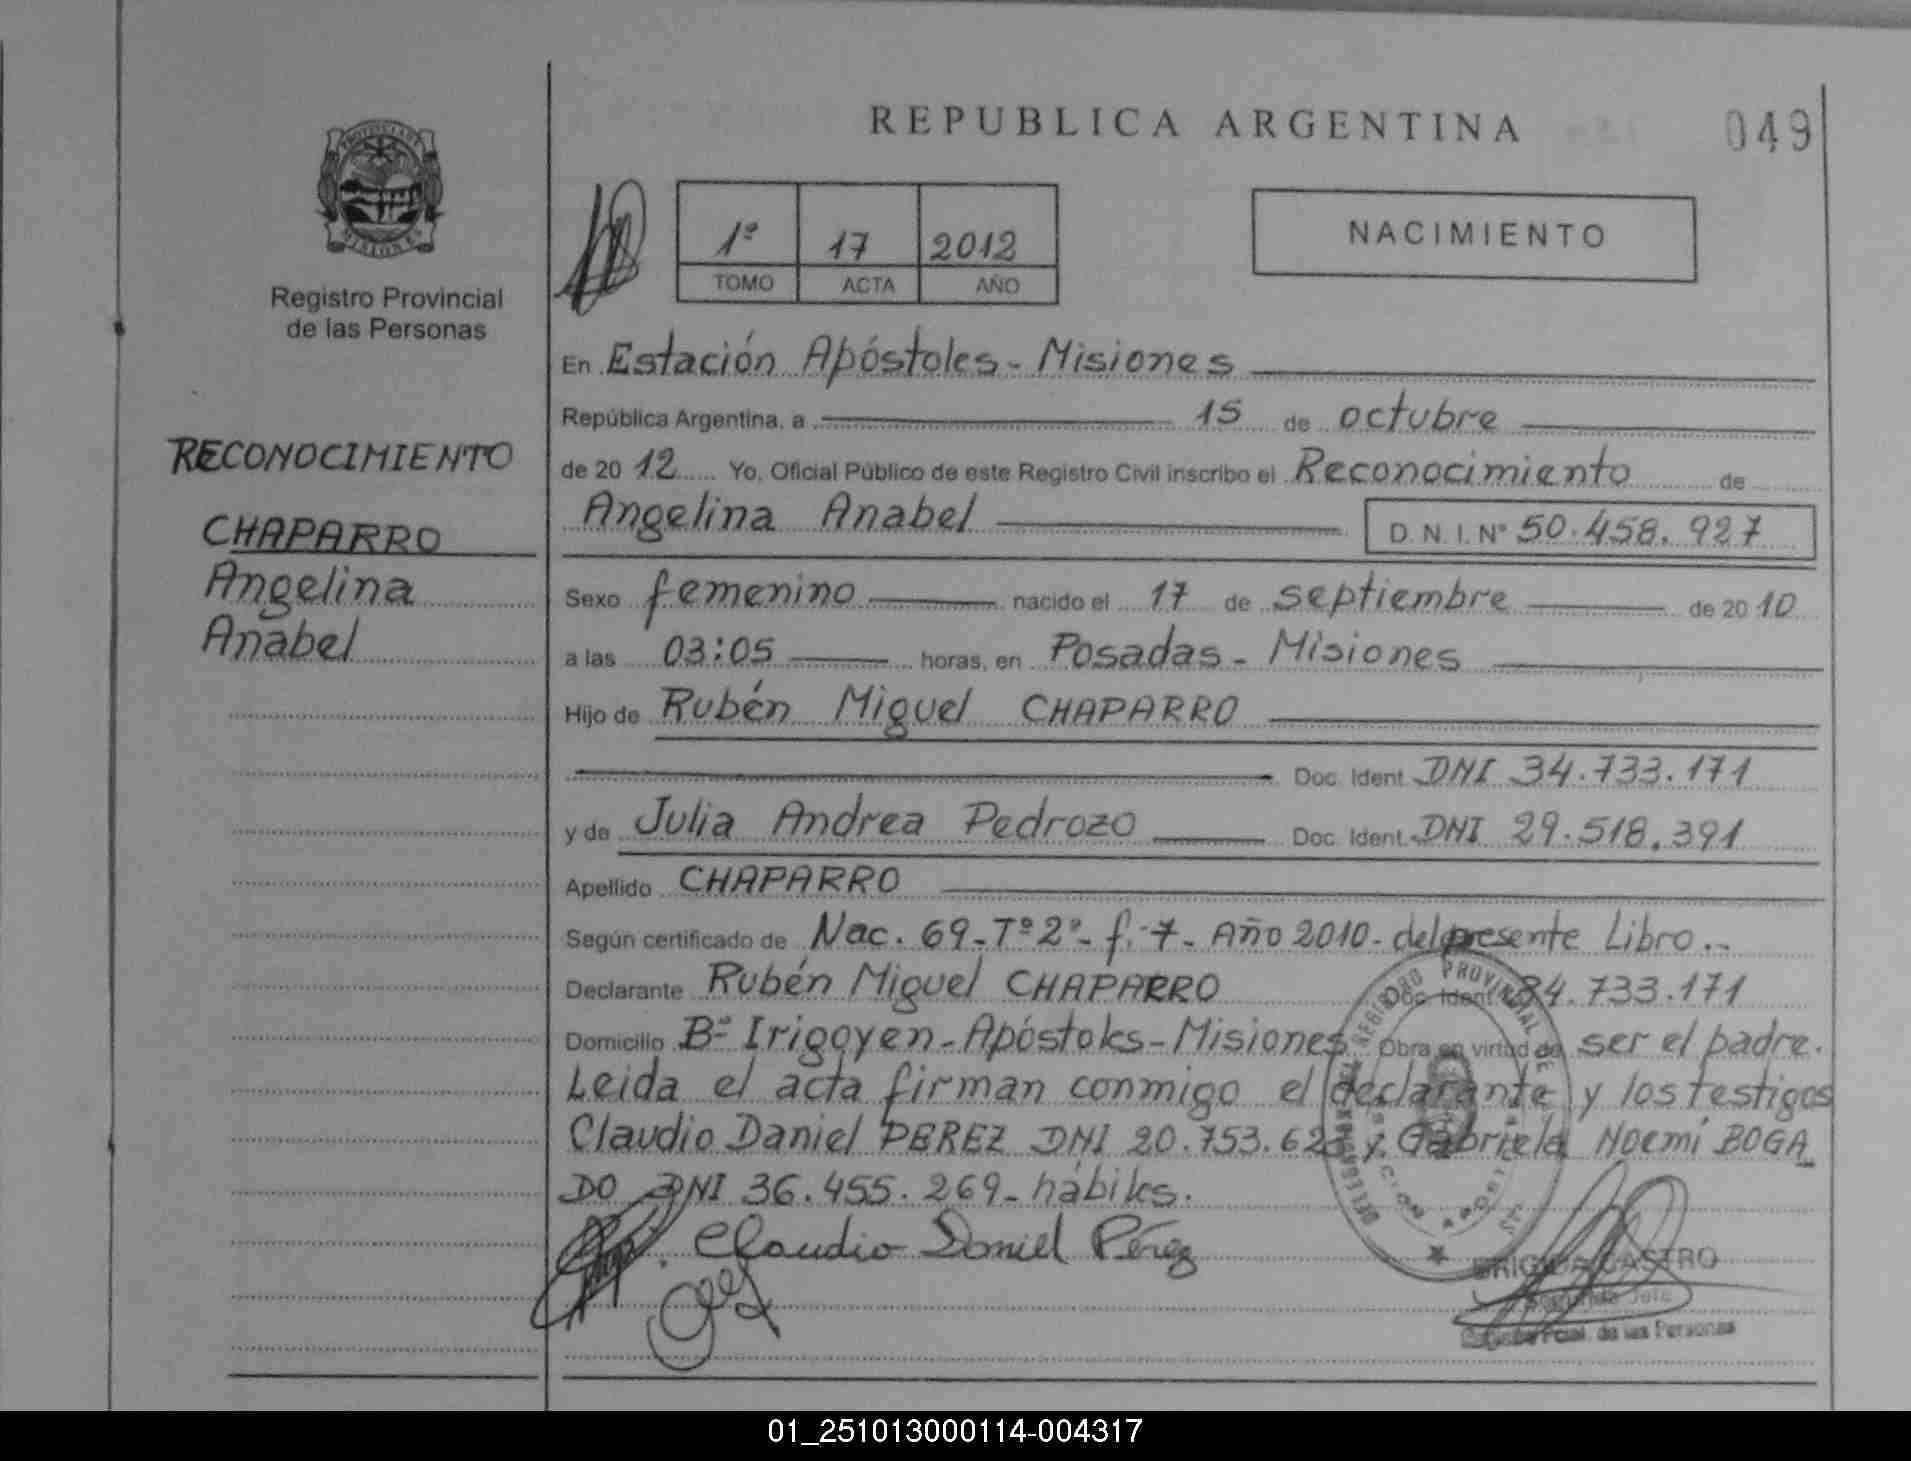 REPUBLICA ARGENTINA
049
PROVINCIA DE
MISIONES
Registro Provincial
de las Personas
1º 17 2012
TOMO ACTA AÑO
NACIMIENTO
RECONOCIMIENTO
CHAPARRO
Angelina
Anabel
En Estación Apóstoles - Misiones
República Argentina, a 15 de octubre
de 2012 Yo, Oficial Público de este Registro Civil inscribo el Reconocimiento de
Angelina Anabel D. N. I. Nº 50.458.927
Sexo femenino nacido el 17 de septiembre de 2010
a las 03:05 horas, en Posadas - Misiones
Hijo de Rubén Miguel CHAPARRO
Doc. Ident. DNI 34.733.171
y de Julia Andrea Pedrozo Doc. Ident. DNI 29.518.391
Apellido CHAPARRO
Según certificado de Nac. 69 - Tº 2º - f. 7 - Año 2010 - del presente Libro.-
Declarante Rubén Miguel CHAPARRO Doc. Ident. 34.733.171
Domicilio Bº Irigoyen - Apóstoles - Misiones Obra en virtud de ser el padre.
Leida el acta firman conmigo el declarante y los testigos
Claudio Daniel PEREZ DNI 20.753.62 y Gabriela Noemí BOGA
DO DNI 36.455.269 - hábiles.
Claudio Daniel Pérez
REGISTRO PROVINCIAL DE
BRIGIDA CASTRO
Jefe
Registro Pcial. de las Personas
01_251013000114-004317